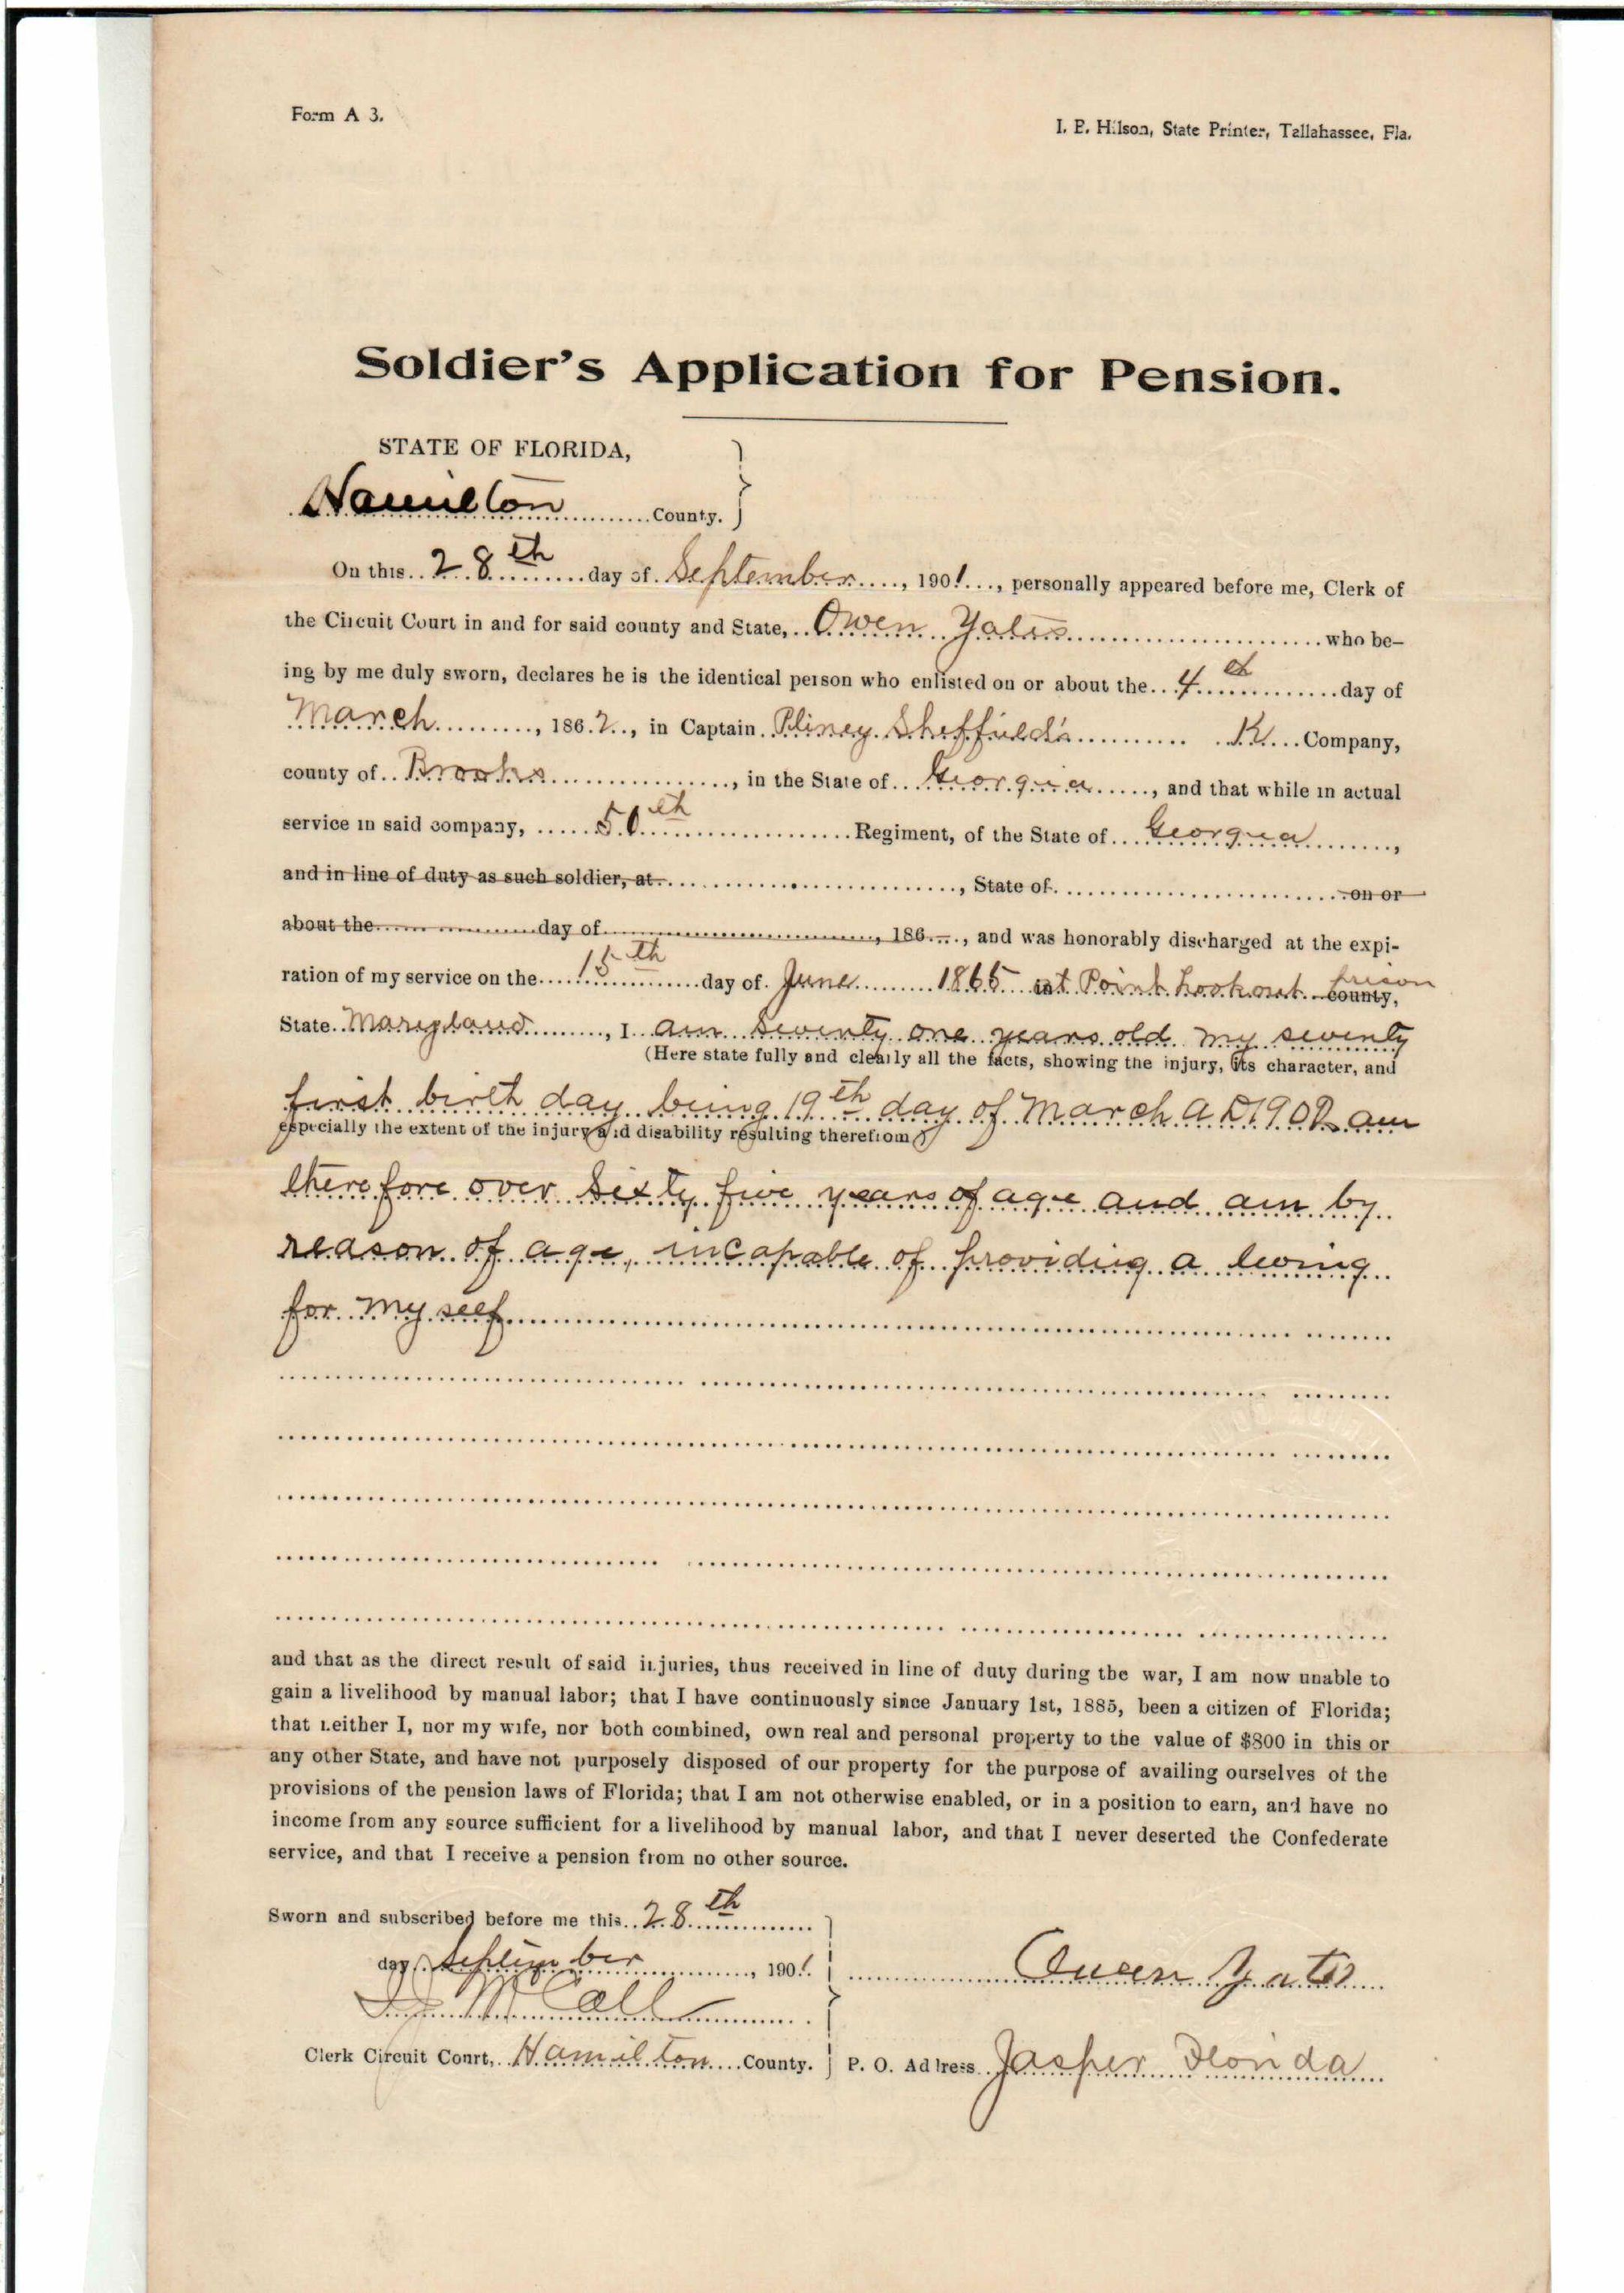 Form A 3.
I. E. Hilson, State Printer, Tallahassee, Fla.
Soldier's Application for Pension.
STATE OF FLORIDA,
Hamilton County.
On this 28th day of September, 1901, personally appeared before me, Clerk of
the Circuit Court in and for said county and State, Owen Yates who be-
ing by me duly sworn, declares he is the identical person who enlisted on or about the 4th day of
March, 1862, in Captain Pliney Sheffield's K Company,
county of Brooks, in the State of Georgia, and that while in actual
service in said company, 50th Regiment, of the State of Georgia,
and in line of duty as such soldier, at, State of on or
about the day of, 186, and was honorably discharged at the expi-
ration of my service on the 15th day of June 1865 at Point Lookout prison county,
State Maryland, I am seventy one years old my seventy
(Here state fully and clearly all the facts, showing the injury, its character, and
first birth day being 19th day of March A D 1902 am
especially the extent of the injury and disability resulting therefrom)
therefore over Sixty five years of age and am by
reason of age, incapable of providing a living
for my self
and that as the direct result of said injuries, thus received in line of duty during the war, I am now unable to
gain a livelihood by manual labor; that I have continuously since January 1st, 1885, been a citizen of Florida;
that neither I, nor my wife, nor both combined, own real and personal property to the value of $800 in this or
any other State, and have not purposely disposed of our property for the purpose of availing ourselves of the
provisions of the pension laws of Florida; that I am not otherwise enabled, or in a position to earn, and have no
income from any source sufficient for a livelihood by manual labor, and that I never deserted the Confederate
service, and that I receive a pension from no other source.
Sworn and subscribed before me this 28th
day September, 1901.
Owen Yates
McCall
Clerk Circuit Court, Hamilton County.
P. O. Address Jasper Florida